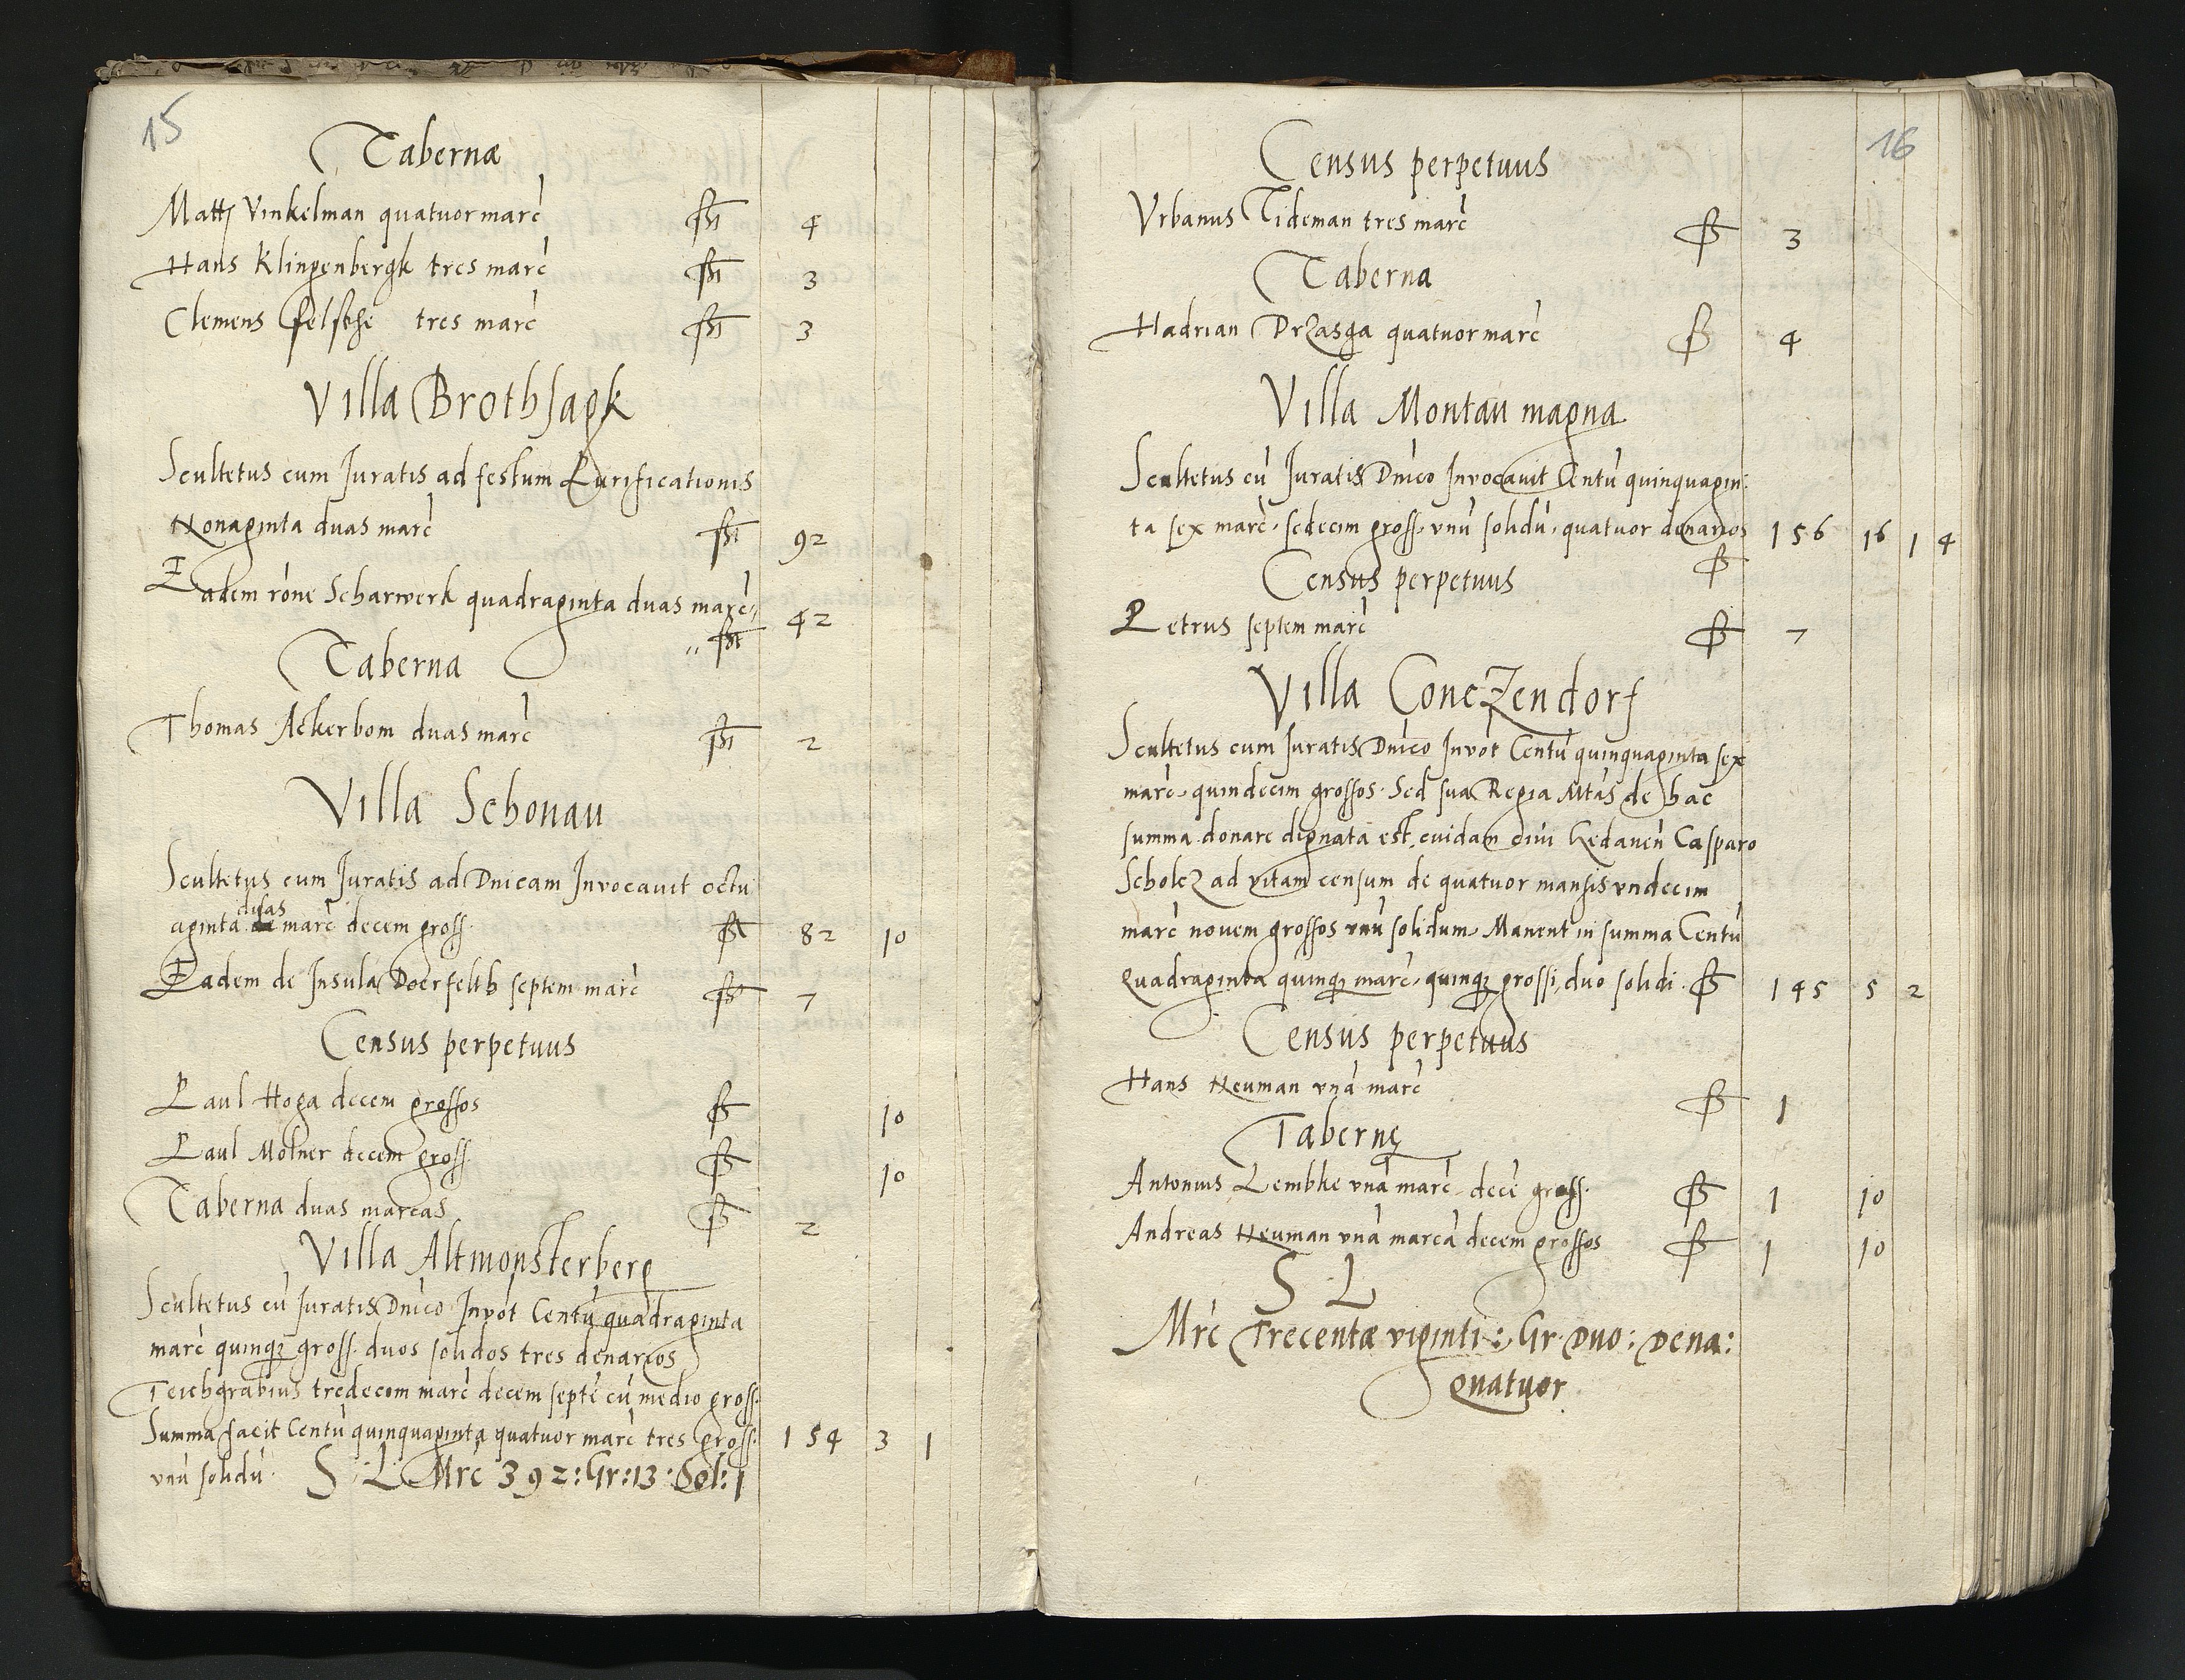 15
Tabernæ
Matts Vinkelman quatuor marc̀ 4
Hans Klingenbergk tres marc̀ 3
Clemens felsche tres marc̀ 3
Villa Brothsagk
Scultetus cum Juratis ad festum Purificationis
Nonaginta duas marc̀ 92
Eadem róne Scharwerk quadraginta duas marc̀ 42
Taberna
Thomas Ackerbom duas marc̀ 2
Villa Schonau
Scultetus cum Juratis ad Dnicam Invocauit octu
aginta duas marc̀ decem gross. 82 10
Eadem de Insula Doerfelth septem marc̀ 7
Census perpetuus
Paul Hoga decem grossos 10
Paul Molner decem gross. 10
Taberna duas marcas 2
Villa Altmonsterberg
Scultetus cù Juratis Dnico Invot Centù quadraginta
marc̀ quinqz gross. duos solidos tres denarios
Teichgrabius tredecem marc̀ decem septè cù medio gross.
Summa facit Centù quinquaginta quatuor marc̀ tres gross. 154 3 1
vnù solidù. S L Mrc 392: Gr: 13: Sol: 1
16
Census perpetuus
Vrbanus Tideman tres marc̀ 3
Taberna
Hadrian Drzasga quatuor marc̀ 4
Villa Montau magna
Scultetus cù Juratis Dnico Invocauit Centù quinquagin:
ta sex marc̀. sedecim gross. vnù solidù. quatuor denarios 156 16 1 4
Census perpetuus
Petrus septem marc̀ 7
Villa Conczendorf
Scultetus cum Juratis Dnico Invot Centù quinquaginta sex
marc̀. quindecim grossos. Sed sua Regia Mtas de hac
summa donare dignata est, cuidam ciui Gedanen̄ Casparo
Scholcz ad vitam censum de quatuor mansis vndecim
marc̀ novem grossos vnù solidum. Manent in summa Centù
quadraginta quinqz marc̀. quinqz grossi, duo solidi. 145 5 2
Census perpetuus
Hans Neuman vnà marc̀ 1
Tabernę
Antonius Lembke vnà marc̀ decè gross. 1 10
Andreas Neuman vnà marcà decem grossos 1 10
S L
Mrc Trecentæ viginti: Gr. Duo: Dena:
quatuor